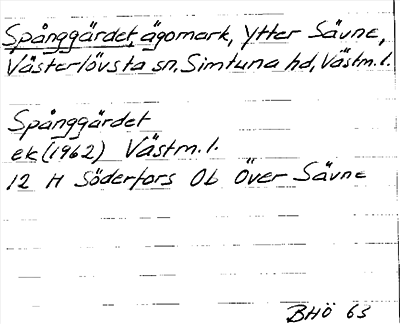 Spånggärdet, ägomark, Ytter Sävne,
Västerlövsta sn, Simtuna hd, Västm. l.
Spånggärdet
ek (1962) Västm. l.
12 H Söderfors Ob Över Sävne
BHÖ 63